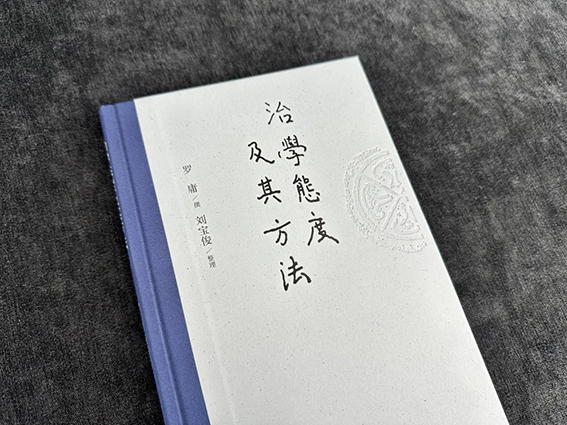 治學態度
及其方法
罗庸/撰 刘宝俊/整理